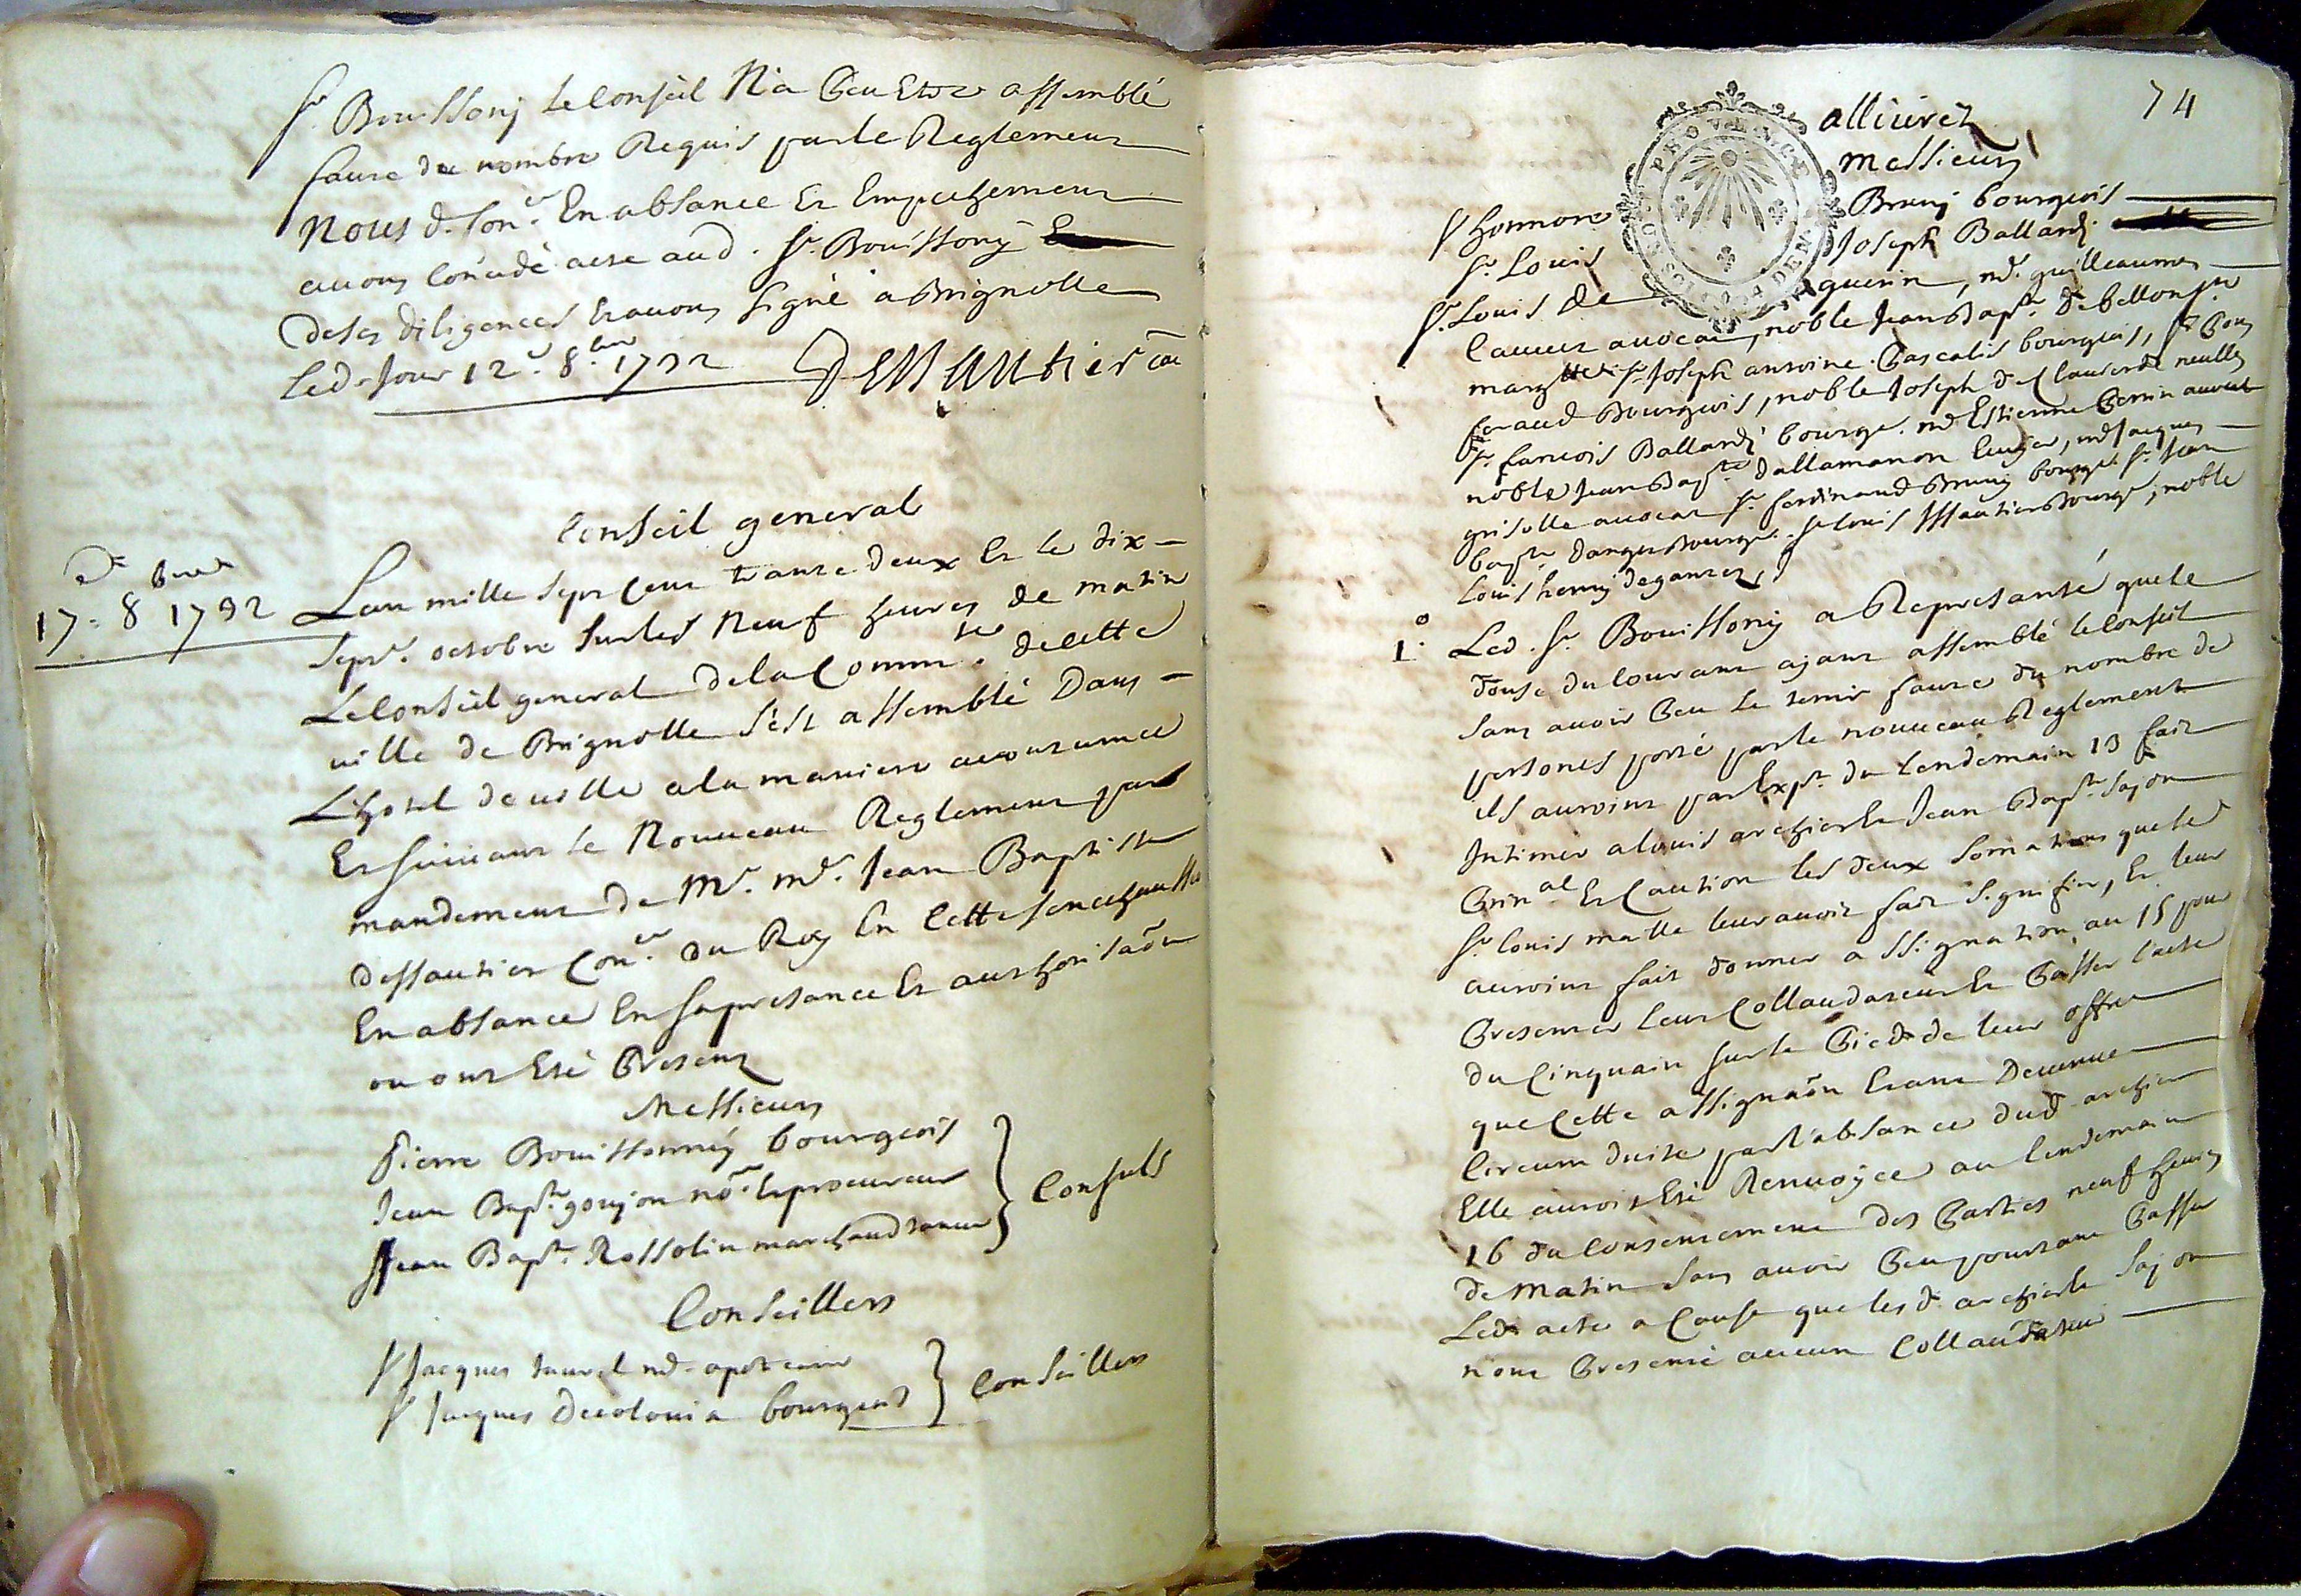 Sr Bouissony le Conseil N'a peu Etre assemblé
faute du nombre Requis par le Reglement
Nous d. Coner En absance Et Empechement
avons concedé acte aud. Sr. Bouissony
de ses diligences Et avons signé a Brignolle
Led. Jour 12e 8bre 1732 Dessautier
Conseil general
17e 8bre 1732
L'an mille sept cent trante deux Et le dix
sept.e octobre sur les Neuf heures de matin
Le Conseil general de la Comm.té de cette
ville de Brignolle s'est assemblé Dans
L'hotel de ville a la maniere acoutumee
Et suivant le Nouveau Reglement par
mandement de Mr. me. Jean Baptiste
dessautier Coner du Roy En cette senechaussee
En absance En sa presance Et authorisaõn
ou ont Eté Presens
Messieurs
Pierre Bouissonny bourgeois
Jean Bapte goujon nõre Et procureur
Jean Bapte Rossolin marchand taneur
Consuls
Conseillers
Sr Jacques taurel md. apoticaire
Sr Jacques Decolonia bourgeois
Conseillers
74
PROVENCE
SOLS DEN
allivrez
Messieurs
Sr honnore Bruny bourgeois
Sr. Louis Joseph Ballardy
Sr. Louis de guerin, me. guilleaume
avocat, noble Jean Bapte. de bellon
Sr Joseph antoine Pascalis bourgeois, Sr
feraud Bourgeois, noble Joseph de Clavier de neulles
Sr. francois Ballardy bourge. me Estienne Perrin avocat
noble Jean Bapte Dallamanon, me Jacques
grisolle avocat Sr. ferdinand Bruny bourge Sr. Jean
bapte Danger Bourge. Sr louis Bourge, noble
Louis henry degantes
1° Led. Sr. Bouissony a Representé que le
douse du Courant ajant assemblé le Conseil
sans avoir Peu le tenir faute du nombre de
persones porté par le nouveau Reglement
ils auroint par Expt. du lendemain 13 fait
Intimer a louis archier Et Jean Bapte sajon
Prin.al Et Caution les deux somations que le
Sr. louis maille leur avoit fait signifier, Et leur
auroint fait donner assignation au 15 pour
Presenter leur Collaudateur Et Passer l'acte
du Cinquain sur le Pied de leur offre
que Cette assignaõn Etant Devenue
Circumduite par l'absance dud. archier
Elle auroit Eté Renvoyée au lendemain
16 du Consentement des Parties neuf heures
de Matin sans avoir Peu pourtant Passer
Led. acte a Cause que lesd. archier Et sajon
n'ont Presenté aucun Collaudateur